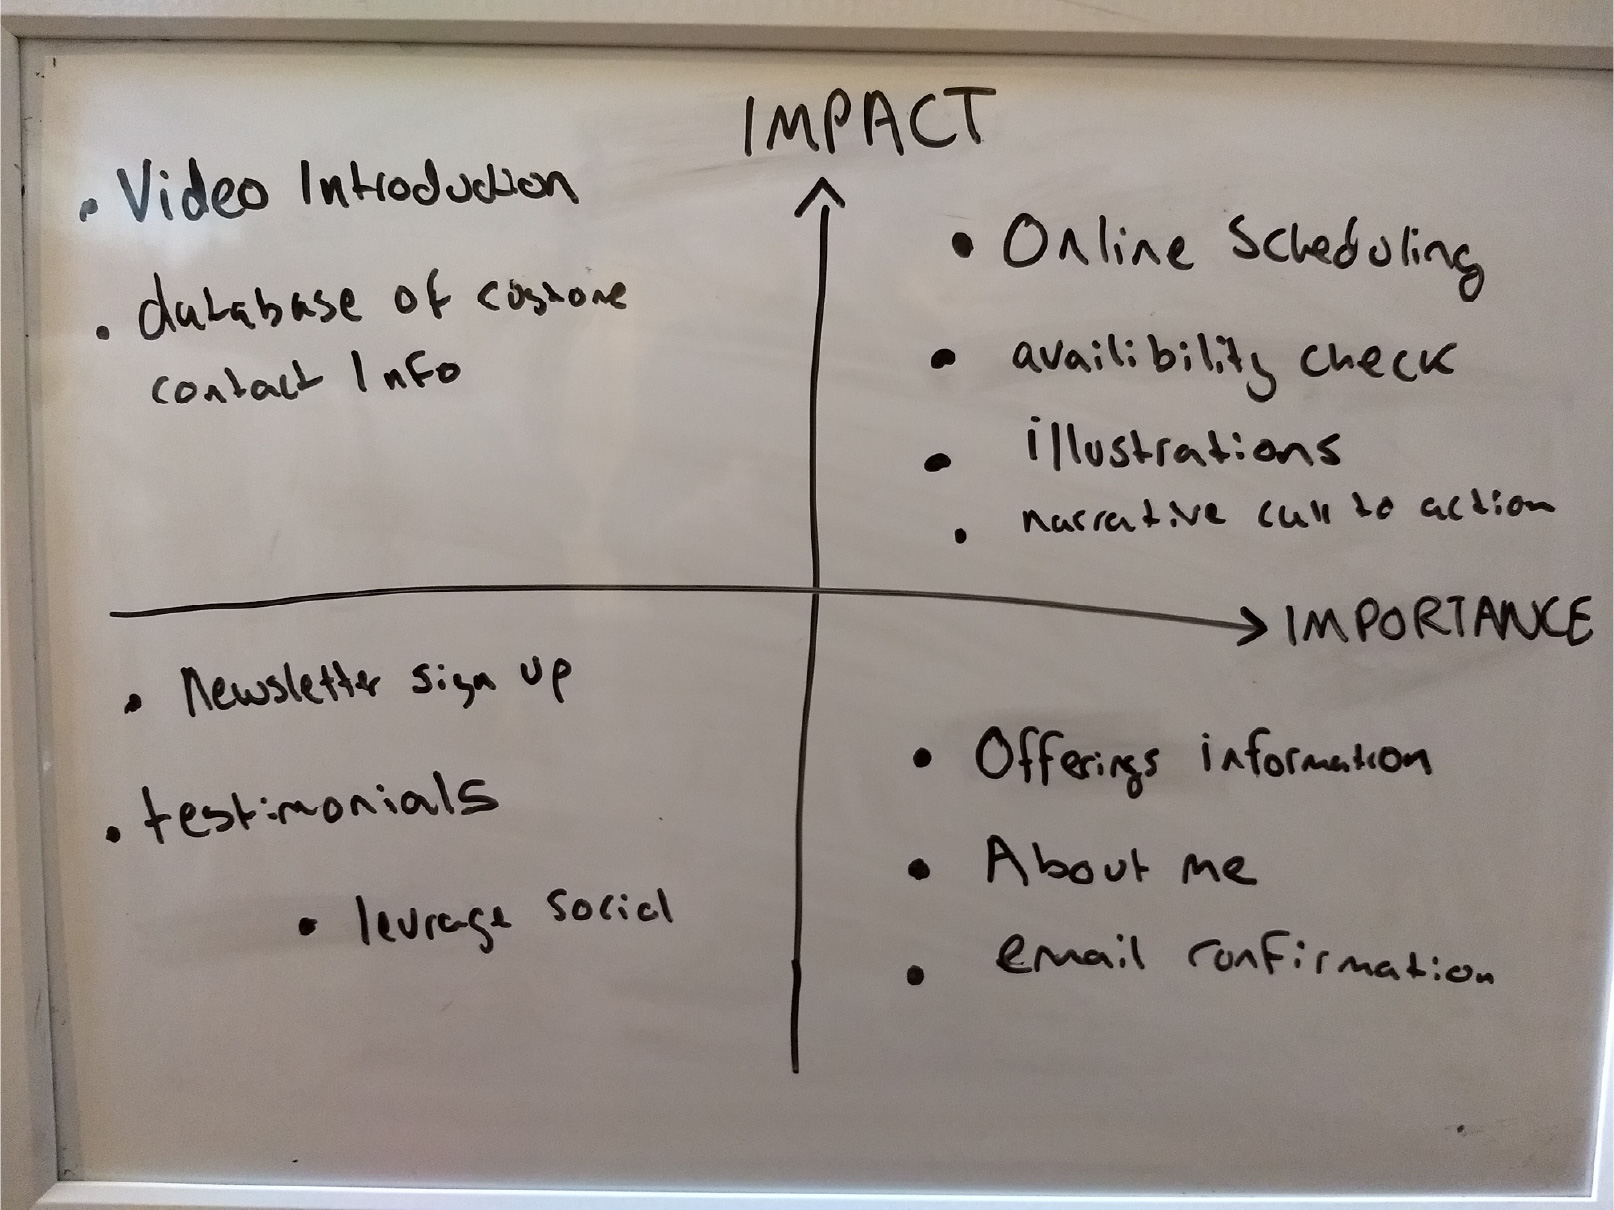 IMPACT
• Video Introduction
• database of custome
contact Info
• Online Scheduling
• availibility check
• illustrations
• narrative call to action
IMPORTANCE
• Newsletter sign up
• testimonials
• levrage social
• Offerings information
• About me
• email confirmation